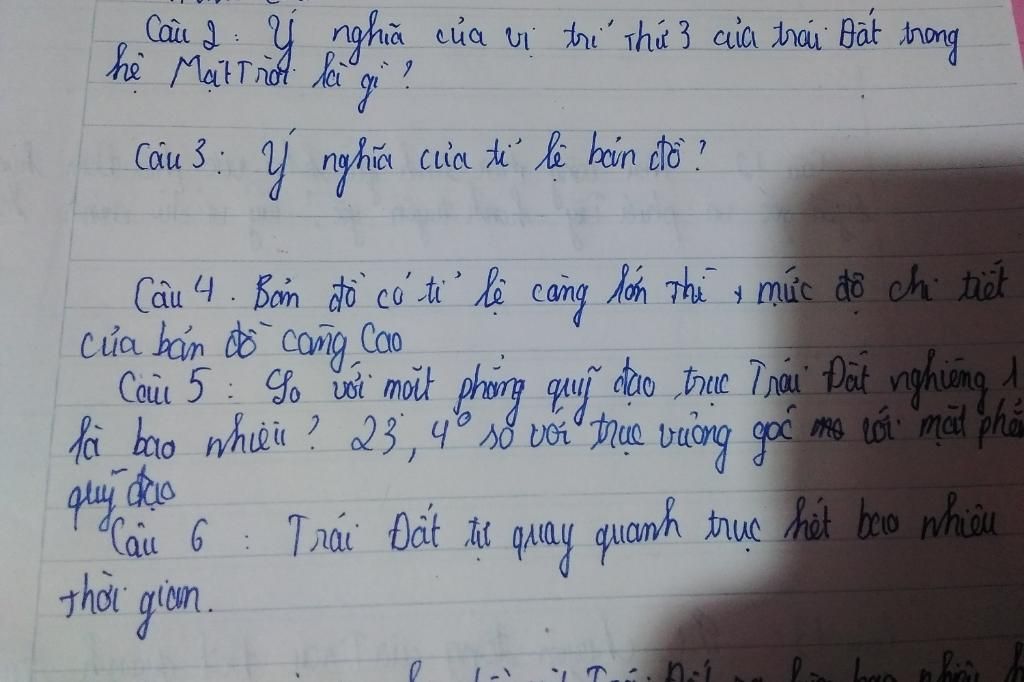 Câu 2: Ý nghĩa của vị trí thứ 3 của trái Đất trong
hệ Mặt Trời là gì?
Câu 3: Ý nghĩa của tỉ lệ bản đồ?
Câu 4. Bản đồ có tỉ lệ càng lớn thì, mức độ chi tiết
của bản đồ càng cao
Câu 5: So với mặt phẳng quỹ đạo, trục Trái Đất nghiêng 1
là bao nhiêu? 23,4° so với trục vuông góc với mặt
quỹ đạo
Câu 6: Trái Đất tự quay quanh trục hết bao nhiêu
thời gian.